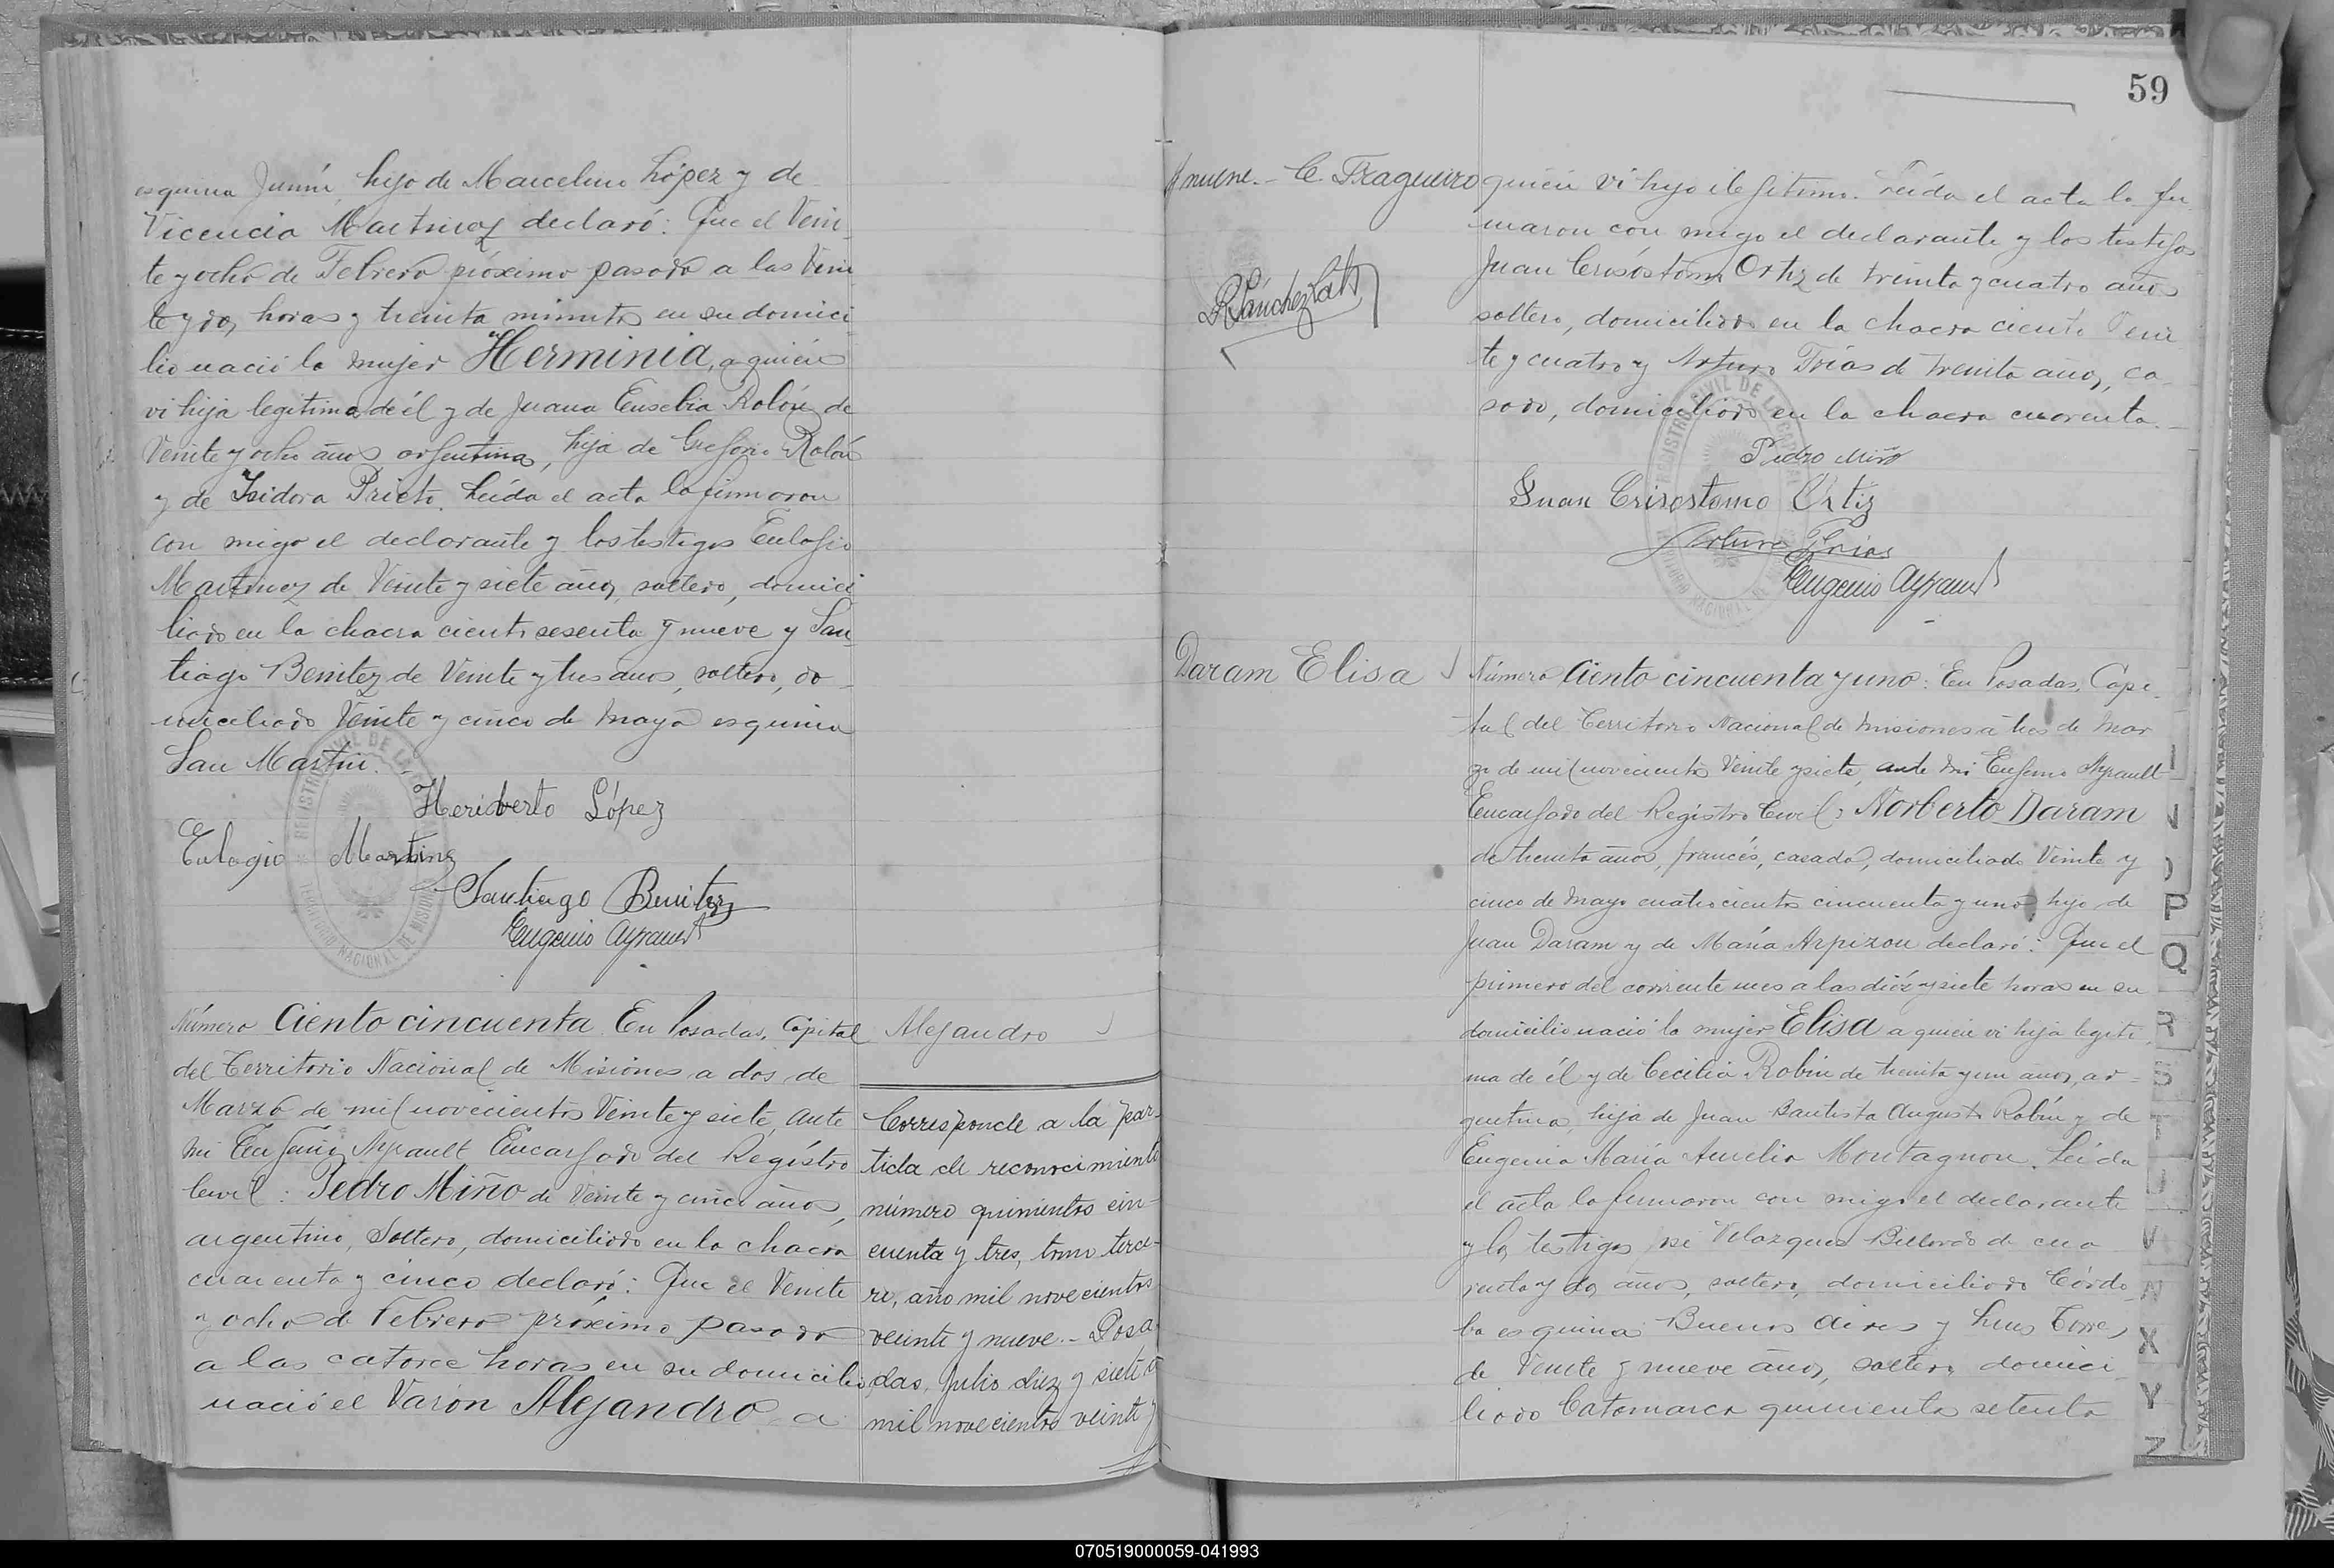 esquina Junín, hijo de Marcelino López y de
Vicencia Martinez declaró: Que el Vein
te y ocho de Febrero próximo pasado a las Vein
te y dos horas y treinta minutos en su domici
lio nació la mujer "Herminia, a quién
vi hija legítima de él y de Juana Eusebia Rolón de
Veinte y ocho años argentina, hija de Gregorio Rolón
y de Isidora Prieto. Leída el acta la firmaron
con migo el declarante y los testigos Eulogio
Martinez de Veinte y siete años, soltero, domici
liado en la chacra ciento sesenta y nueve y San
tiago Benitez de Veinte y tres años, soltero, do
miciliado Veinte y cinco de Mayo esquina
San Martin.
Heriberto López
Eulogio Martinez
Santiago Benitez
Eugenio Ayrault
Número Ciento cincuenta. En Posadas, Capital
del Territorio Nacional de Misiones a dos de
Marzo de mil novecientos Veinte y siete, ante
mi Eugenio Ayrault Encargado del Registro
Civil: Pedro Miño de Veinte y cinco años,
argentino, Soltero, domiciliado en la chacra
cuarenta y cinco declaró: Que el Veinte
y ocho de Febrero próximo pasado
a las catorce horas en su domicilio
nació el Varón Alejandro a
Alejandro
Corresponde a la par
tida de reconocimiento
número quinientos cin-
cuenta y tres, tomo terce-
ro, año mil novecientos
veinte y nueve.- Posa
das, Julio diez y siete de
mil novecientos veinte y
59
nueve.- C. Fragueiro
quién vi hijo ilegítimo. Leída el acta la fir
maron con migo el declarante y los testigos
Juan Crisóstomo Ortiz de treinta y cuatro años
soltero, domiciliado en la chacra ciento Vein
te y cuatro y Arturo Frías de treinta años, ca
sado, domiciliado en la chacra cuarenta.-
Pedro Miño
Juan Crisostomo Ortiz
Arturo Frias
Eugenio Ayrault
Daram Elisa
Número Ciento cincuenta y uno: En Posadas, Capi
tal del Territorio Nacional de Misiones a tres de Mar
zo de mil novecientos Veinte y siete, ante mi Eugenio Ayrault
Encargado del Registro Civil: Norberto Daram
de treinta años, francés, casado, domiciliado Veinte y
cinco de Mayo cuatrocientos cincuenta y uno hijo de
Juan Daram y de María Arpizou declaró: Que el
primero del corriente mes a las diéz y siete horas en su
domicilio nació la mujer Elisa a quién vi hija legíti
ma de él y de Cecilia Robin de treinta y un años, ar-
gentina, hija de Juan Bautista Augusto Robín y de
Eugenia María Aurelia Montagnon. Leída
el acta la firmaron con migo el declarante
y los testigos Velazquez Billordo de cua
renta y dos años, soltero, domiciliado Córdo
ba esquina Buenos Aires y Luis Torres
de Veinte y nueve años, soltero domici
liado Catamarca quinientos setenta
P
Q
R
S
T
U
V
X
Y
Z
070519000059-041993